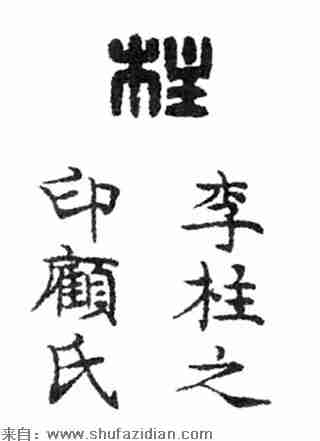 柱
李柱之
印顧氏
来自：www.shufazidian.com